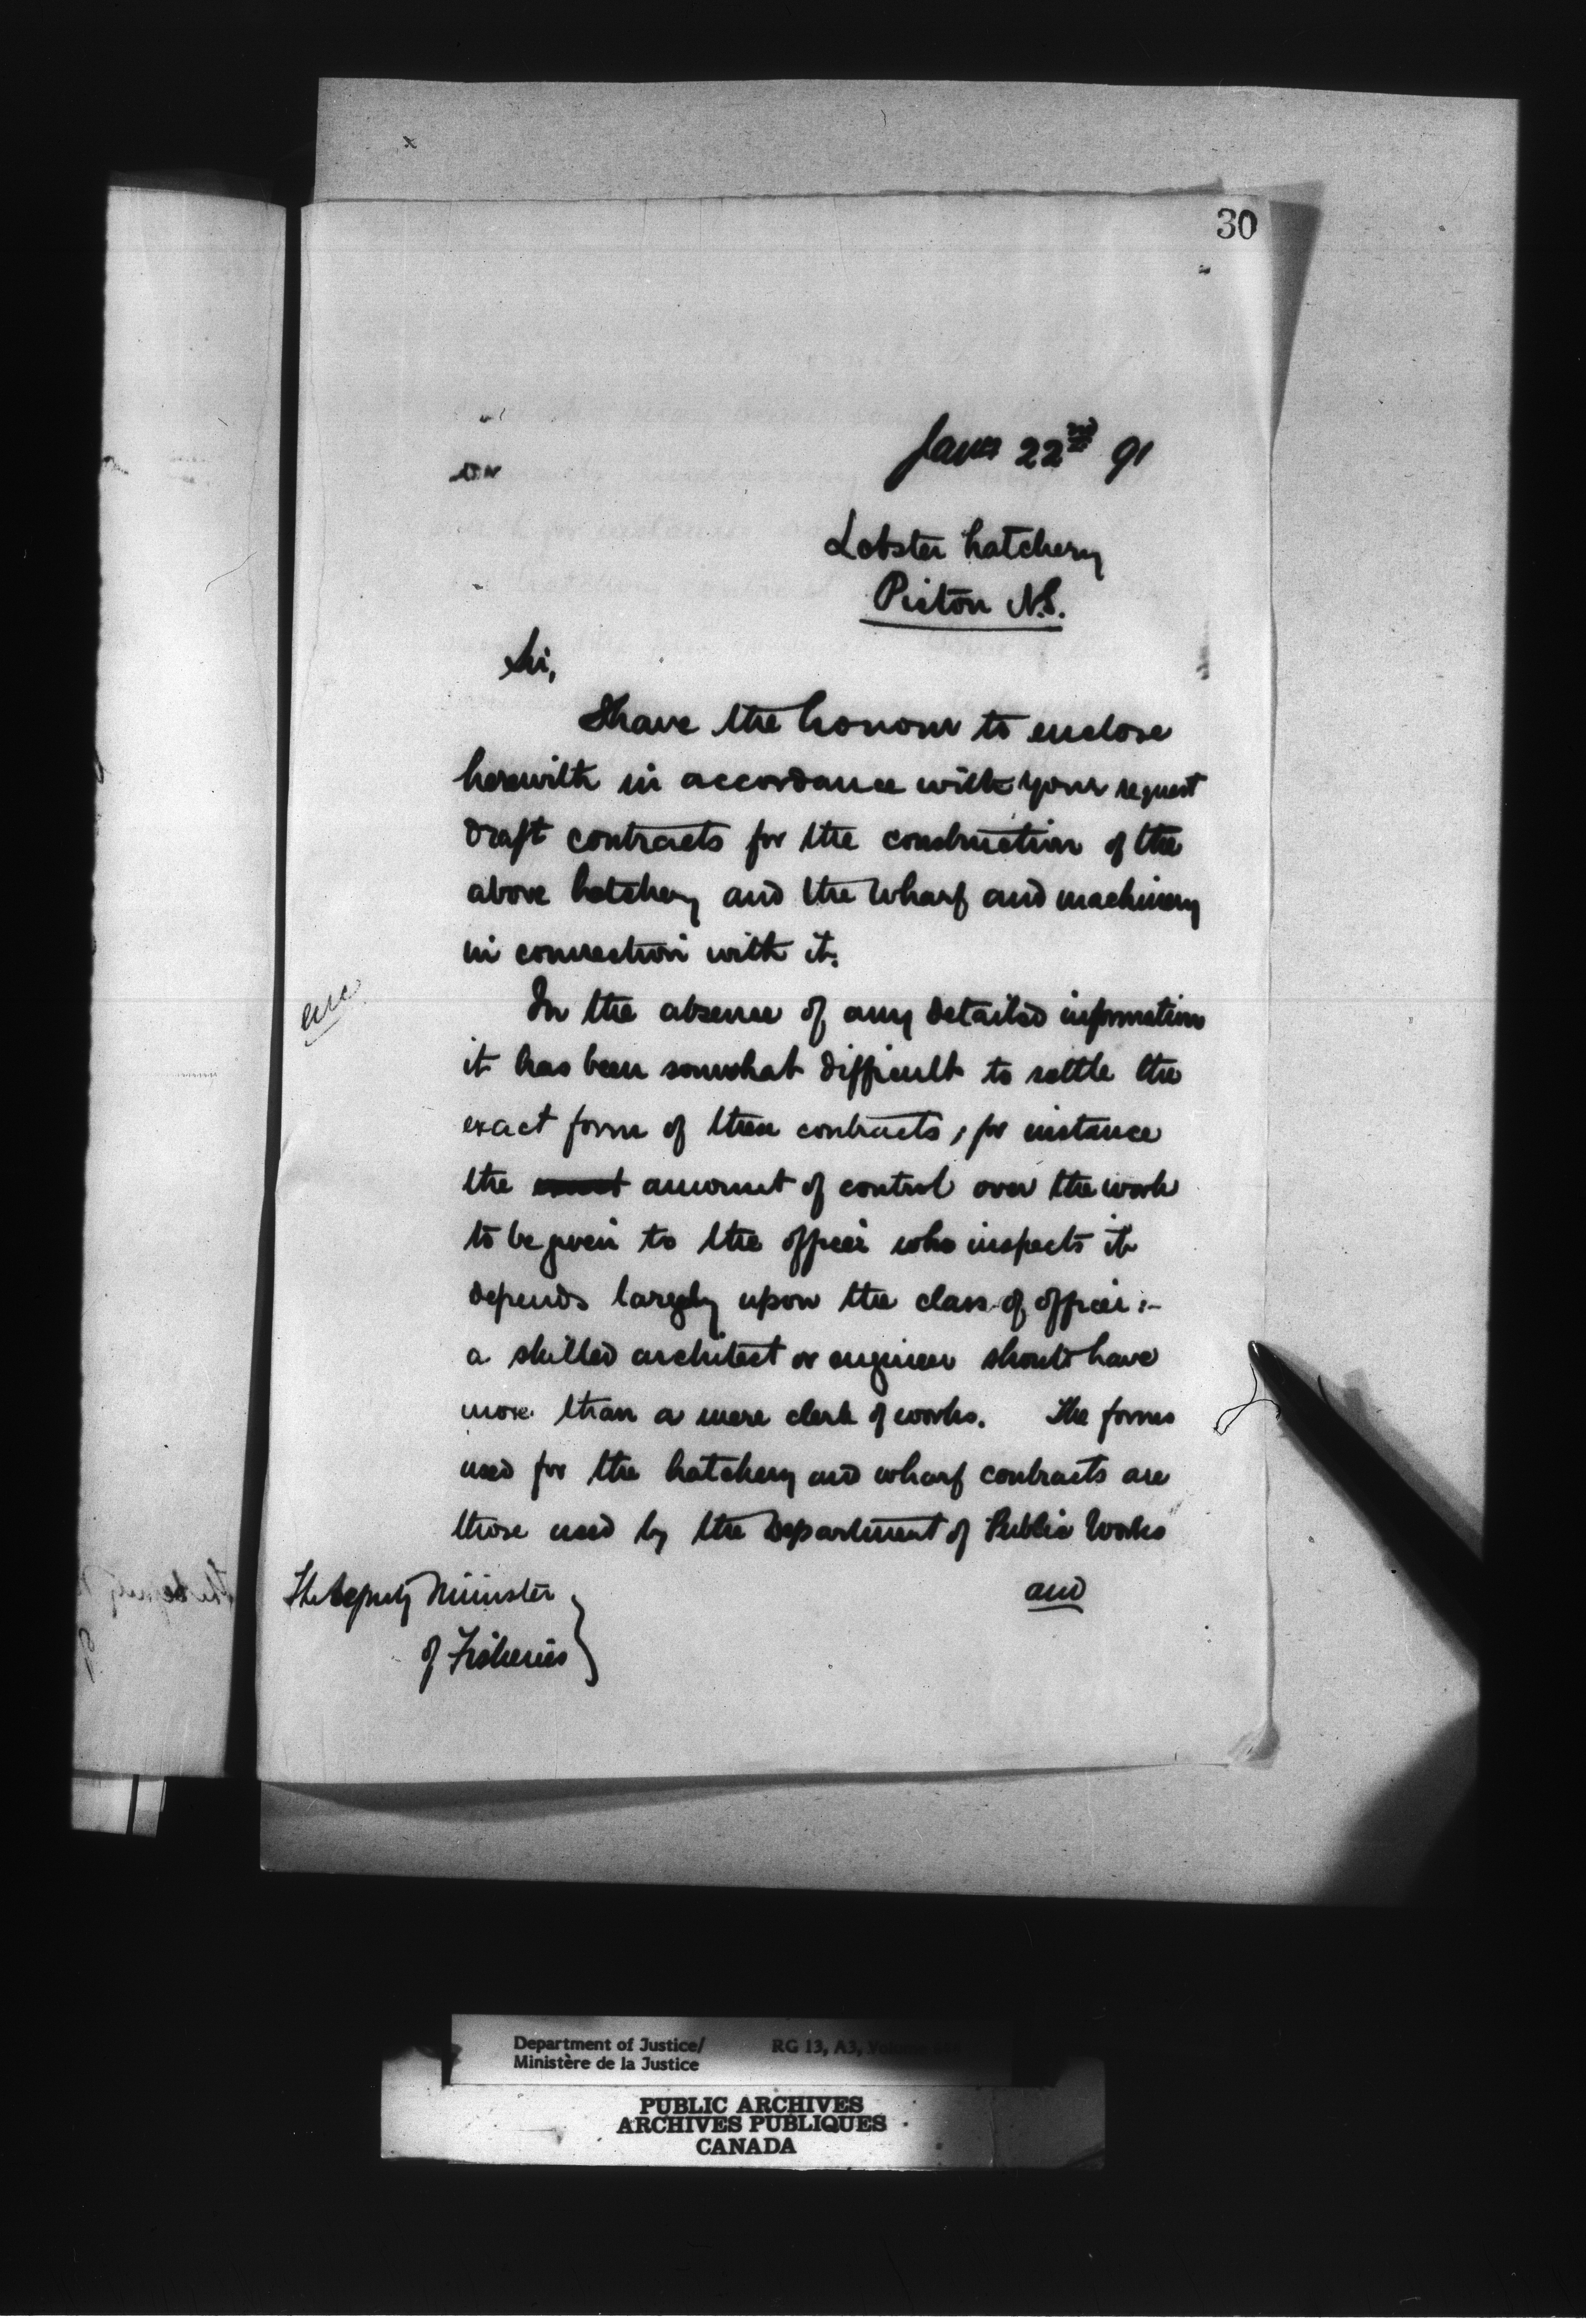 30
Jany 22nd 91
Lobster hatchery
Pictou N.S.
Sir,
I have the honour to enclose
herewith in accordance with your request
draft contracts for the construction of the
above hatchery and the wharf and machinery
in connection with it.
enc
In the absence of any detailed information
it has been somwhat difficult to settle the
exact form of these contracts, for instance
the amount of control over the work
to be given to the officer who inspects it
depends largely upon the class of officer :-
a skilled architect or engineer should have
more than a mere clerk of works. The forms
used for the hatchery and wharf contracts are
those used by the Department of Public Works
and
The Deputy Minister
of Fisheries
Department of Justice/
Ministère de la Justice
RG 13, A3, Volume
PUBLIC ARCHIVES
ARCHIVES PUBLIQUES
CANADA